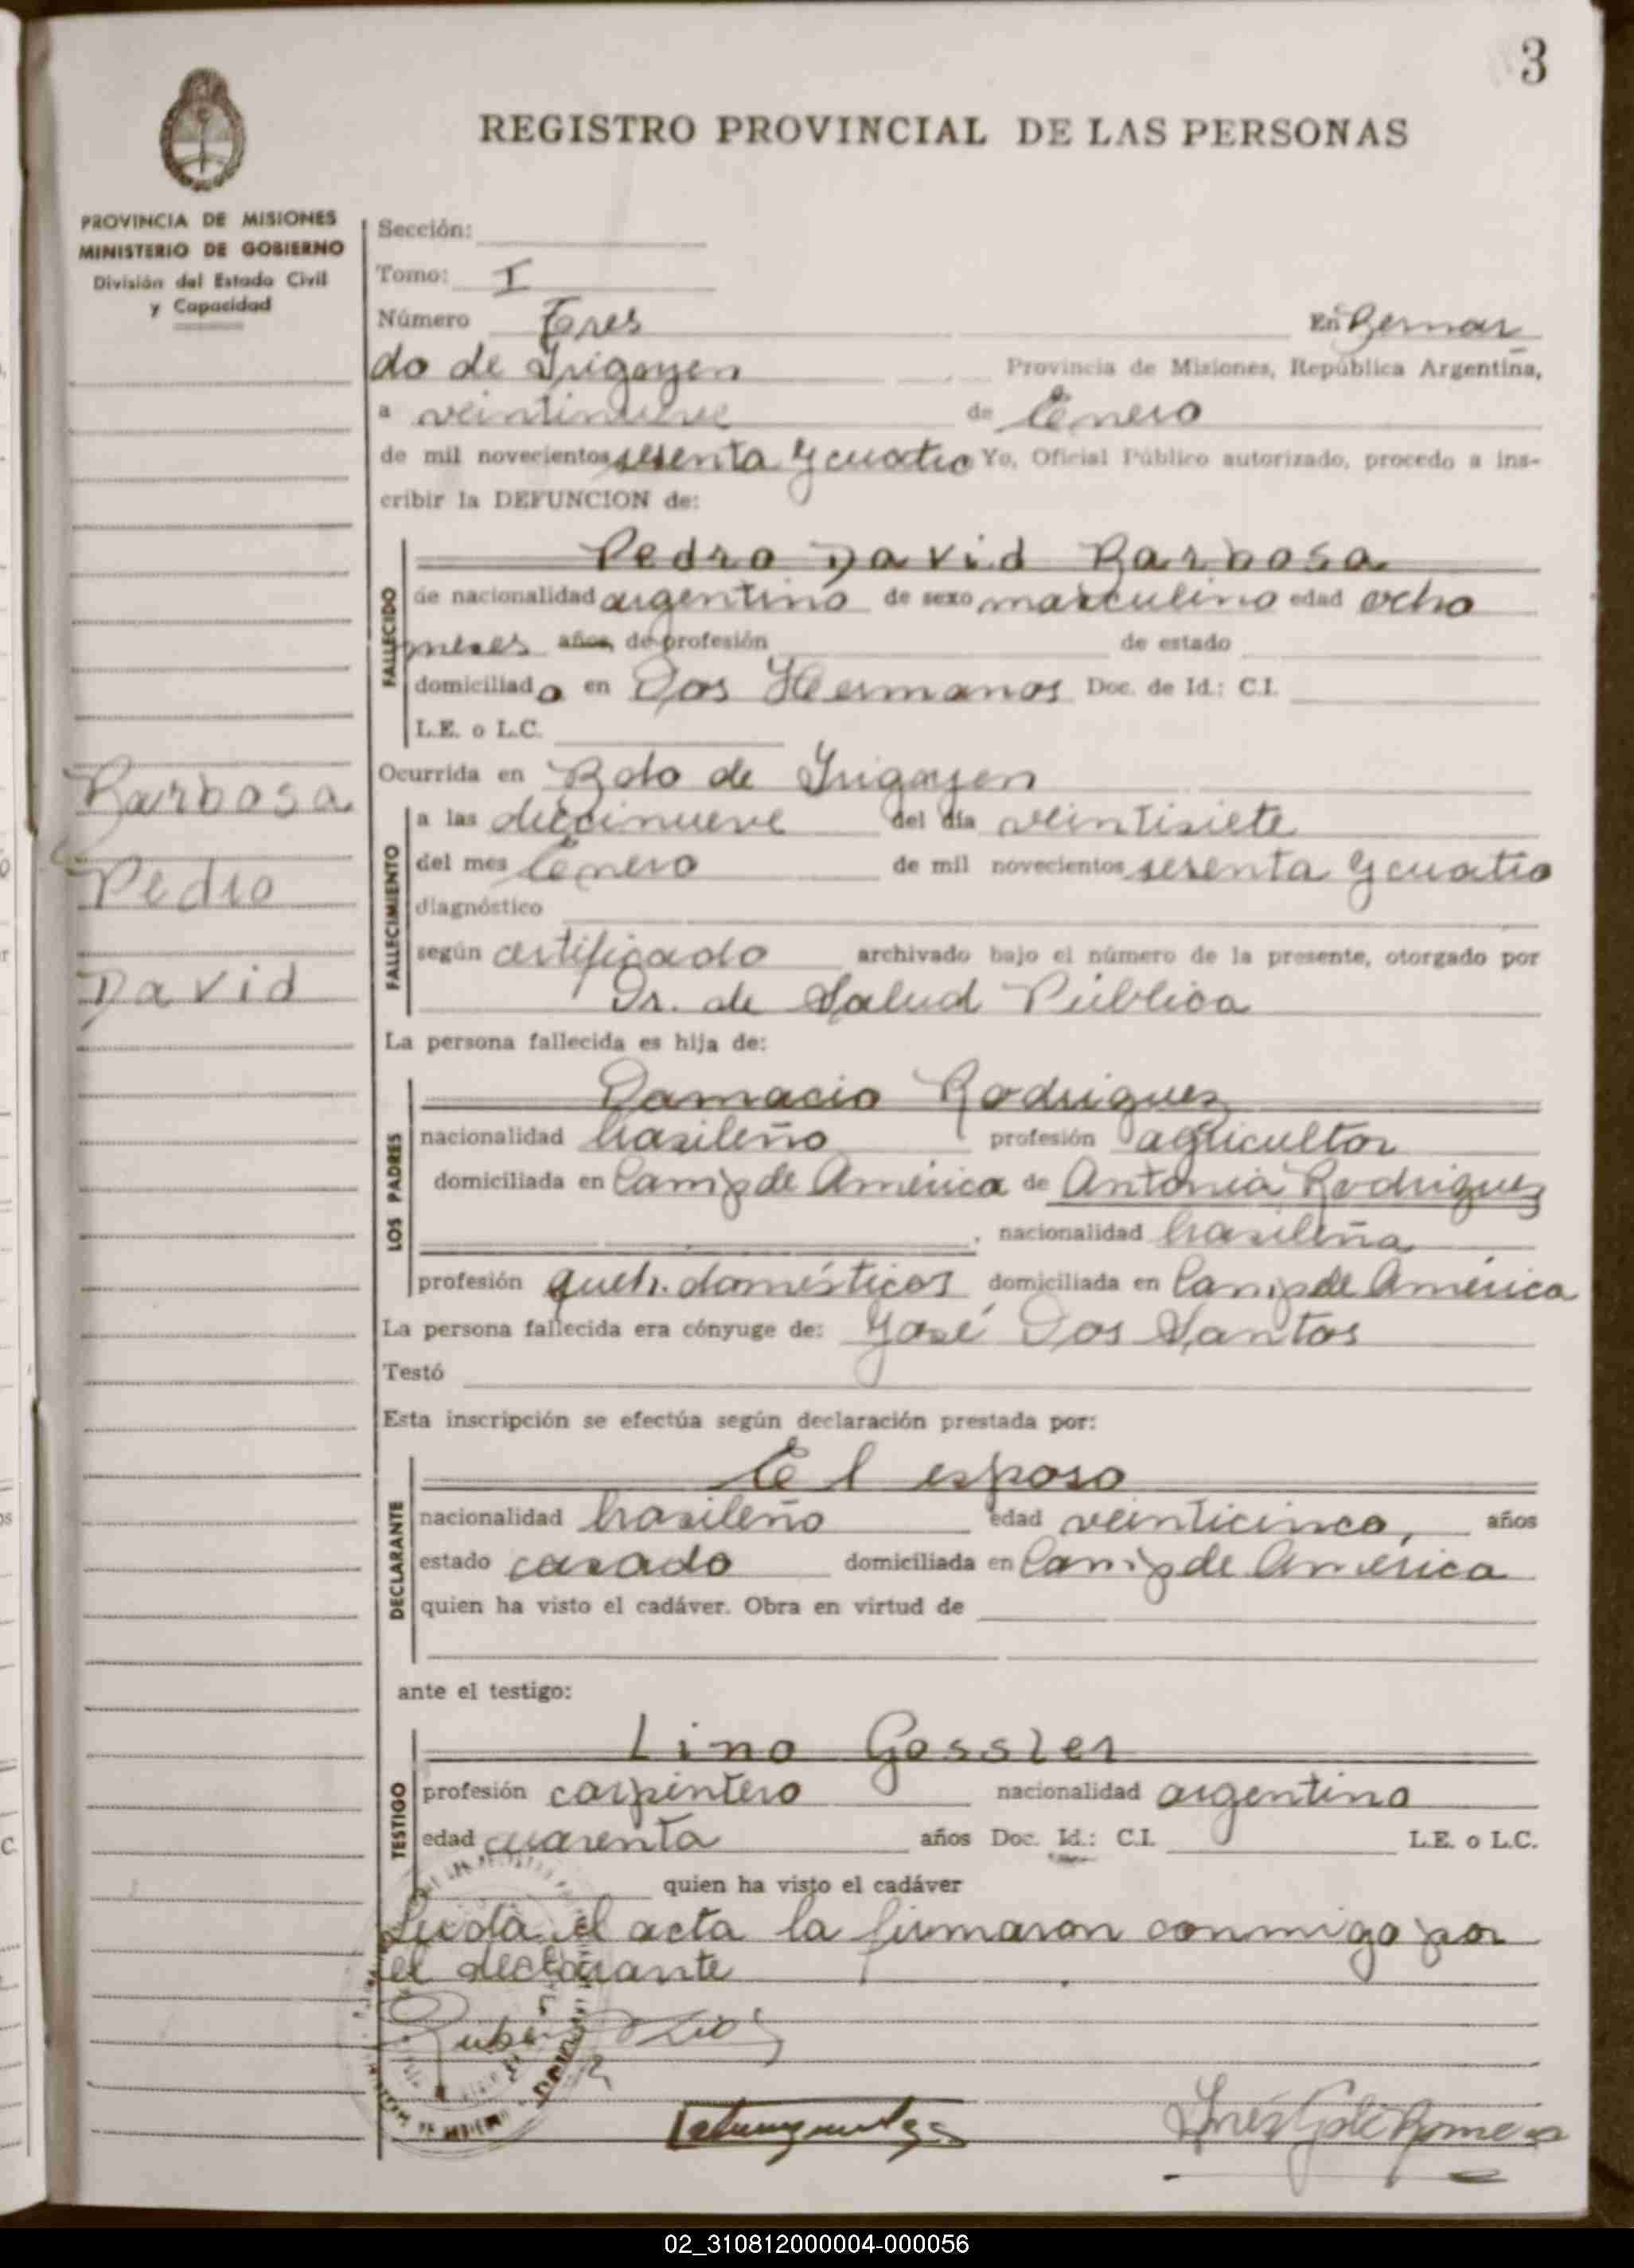 3
REGISTRO PROVINCIAL DE LAS PERSONAS
PROVINCIA DE MISIONES
MINISTERIO DE GOBIERNO
División del Estado Civil
y Capacidad
Sección:
Tomo: I
Número Tres En Bernar
do de Irigoyen Provincia de Misiones, República Argentina,
a veintinueve de Enero
de mil novecientos sesenta y cuatro Yo, Oficial Público autorizado, procedo a ins-
cribir la DEFUNCION de:
Pedro David Barbosa
FALLECIDO
de nacionalidad argentino de sexo masculino edad ocho
meses años, de profesión de estado
domiciliado en Dos Hermanos Doc. de Id.: C.I.
L.E. o L.C.
Barbosa
Pedro
David
Ocurrida en Bdo de Irigoyen
FALLECIMIENTO
a las diecinueve del día veintisiete
del mes Enero de mil novecientos sesenta y cuatro
diagnóstico
según certificado archivado bajo el número de la presente, otorgado por
Dr. de Salud Pública
La persona fallecida es hija de:
LOS PADRES
Damacio Rodriguez
nacionalidad brasileño profesión agricultor
domiciliada en Camp de América de Antonia Rodriguez
, nacionalidad brasileña
profesión queh. domésticos domiciliada en Camp de América
La persona fallecida era cónyuge de: José Dos Santos
Testó
Esta inscripción se efectúa según declaración prestada por:
DECLARANTE
El esposo
nacionalidad brasileño edad veinticinco, años
estado casado domiciliada en Camp de América
quien ha visto el cadáver. Obra en virtud de
ante el testigo:
TESTIGO
Lino Gossler
profesión carpintero nacionalidad argentino
edad cuarenta años Doc. Id.: C.I. L.E. o L.C.
quien ha visto el cadáver
Leída el acta la firmaron conmigo por
el declarante
02_310812000004-000056